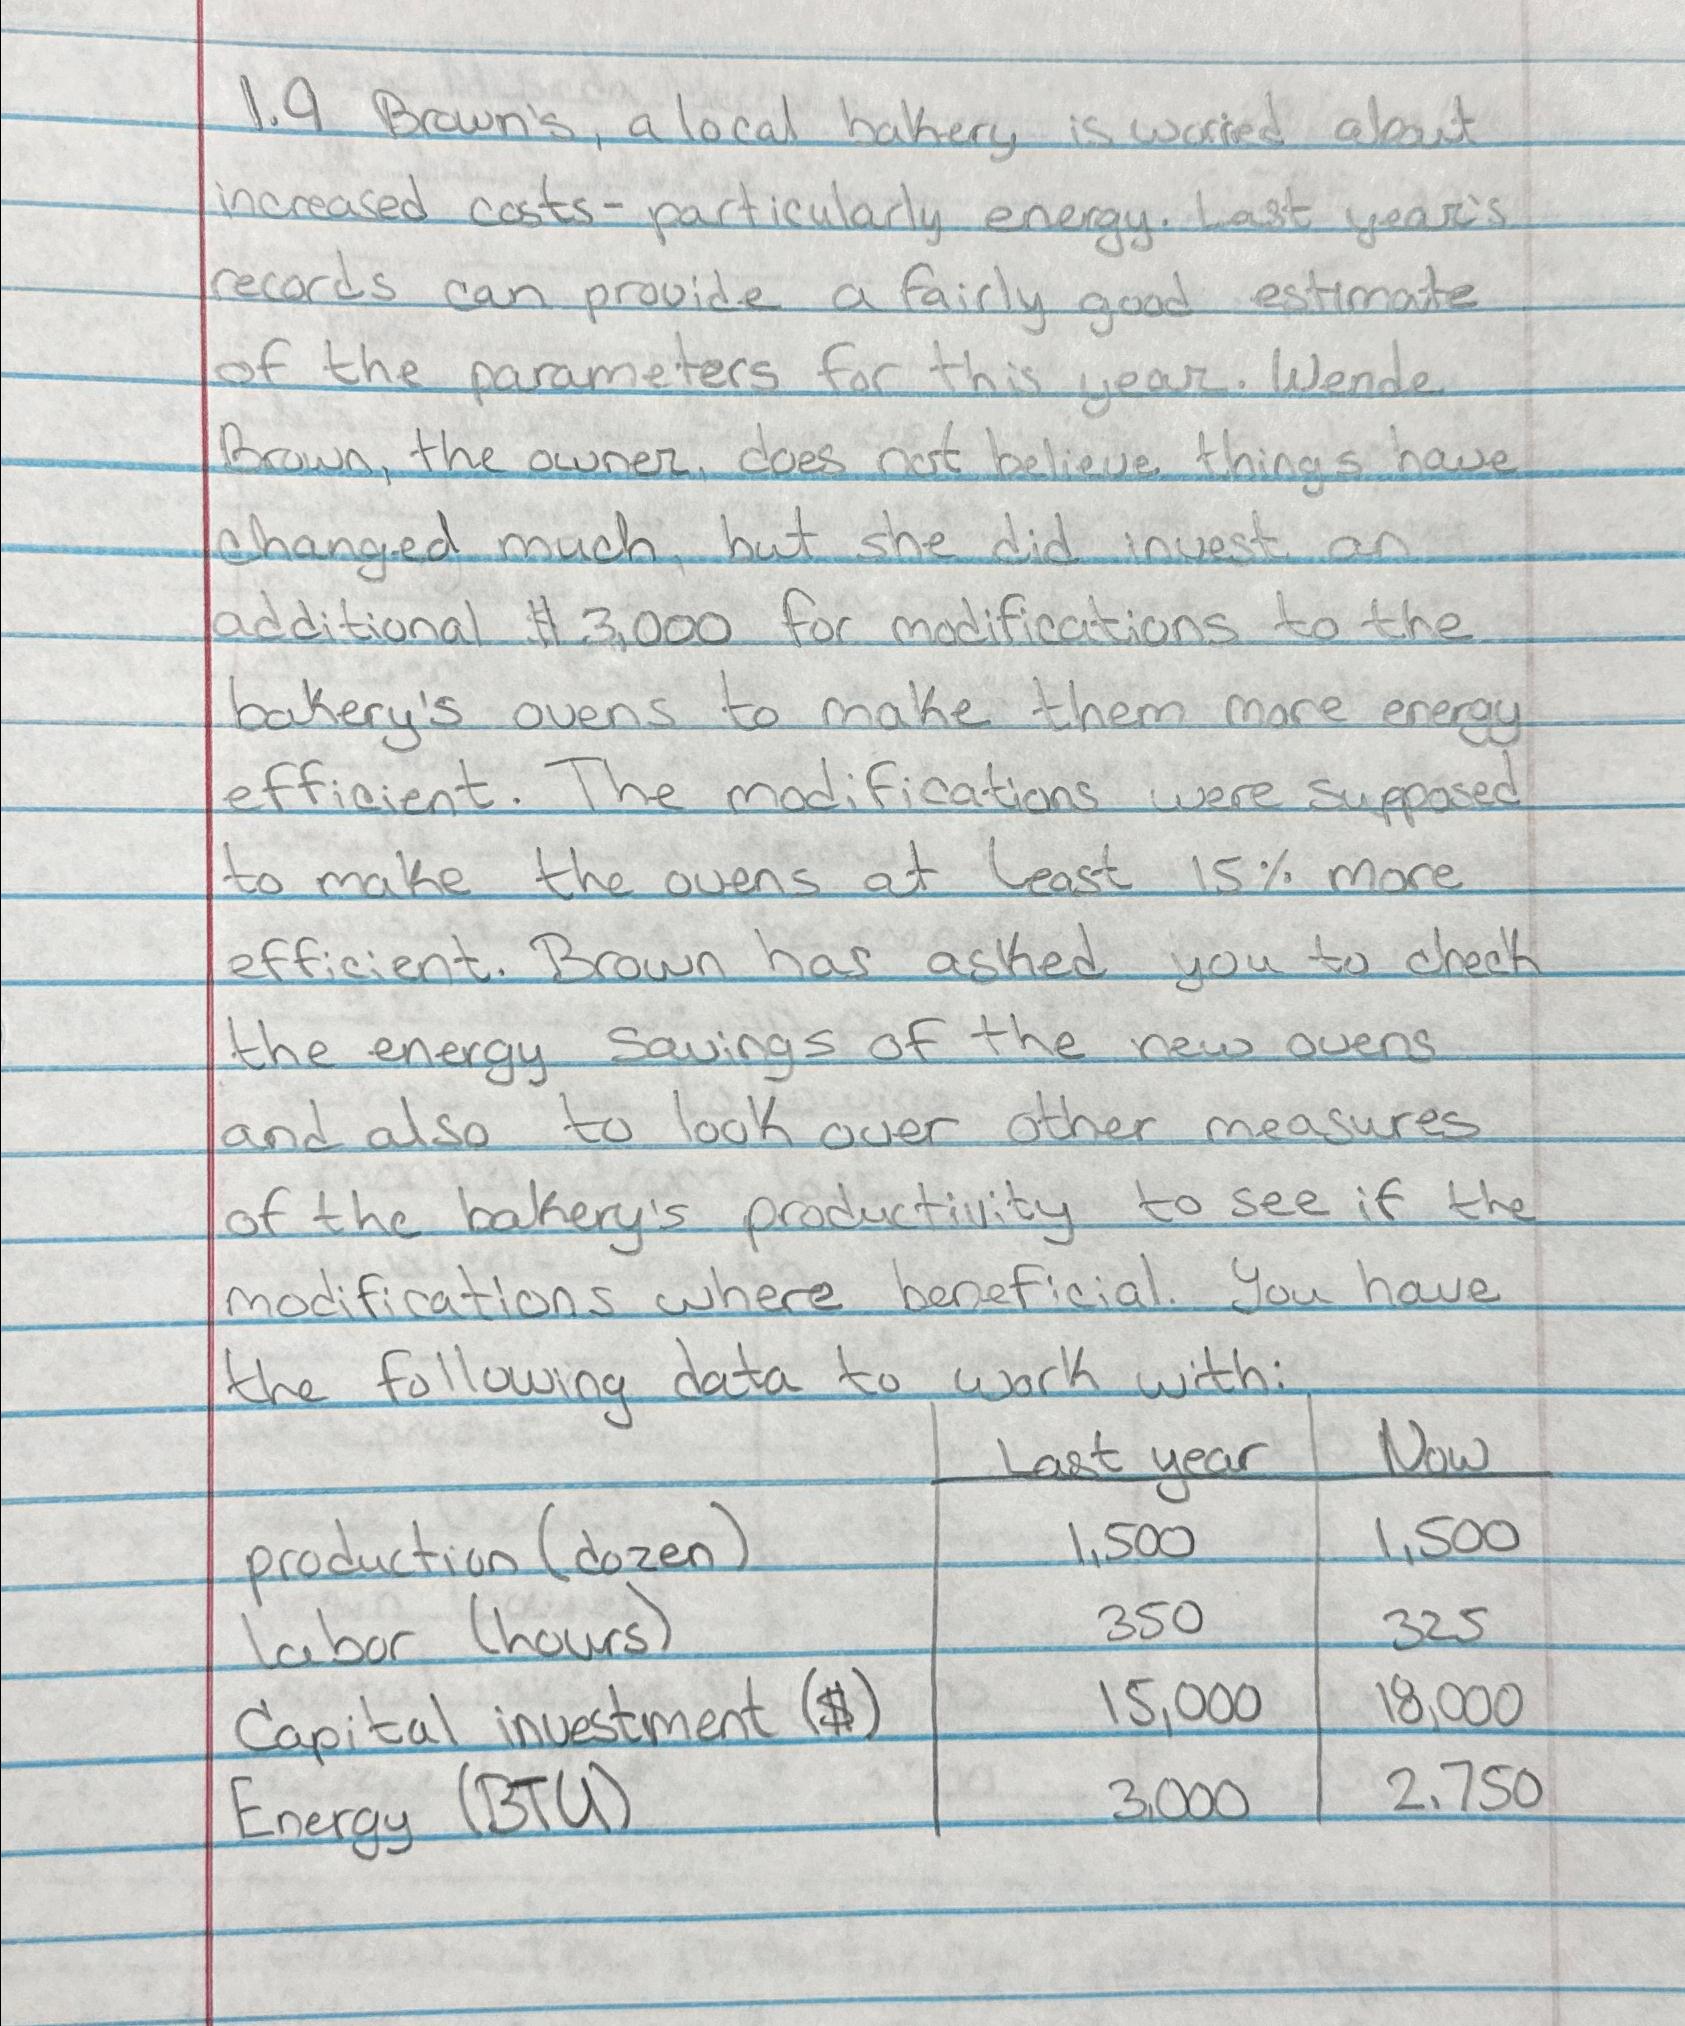 1.9 Brown's, a local bakery is worried about
increased costs - particularly energy. Last year's
records can provide a fairly good estimate
of the parameters for this year. Wende
Brown, the owner, does not believe things have
changed much, but she did invest an
additional $3,000 for modifications to the
bakery's ovens to make them more energy
efficient. The modifications were supposed
to make the ovens at least 15% more
efficient. Brown has asked you to check
the energy savings of the new ovens
and also to look over other measures
of the bakery's productivity to see if the
modifications where beneficial. You have
the following data to work with:
Last year Now
production (dozen) 1,500 1,500
labor (hours) 350 325
Capital investment ($) 15,000 18,000
Energy (BTU) 3,000 2,750